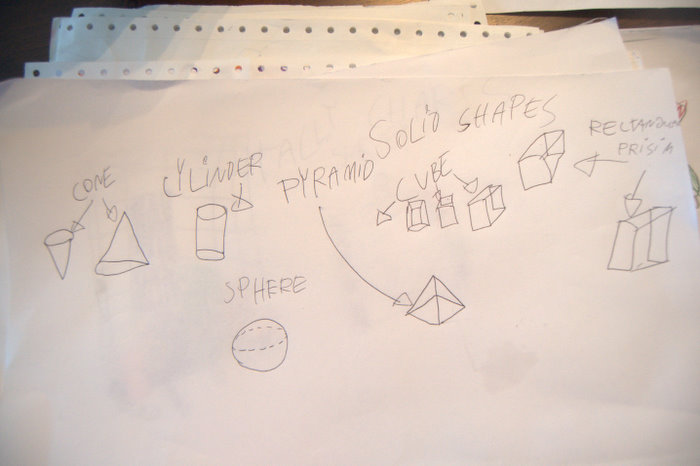 SOLID SHAPES
CONE
CYLINDER
PYRAMID
CUBE
RECTANGULAR
PRISM
SPHERE